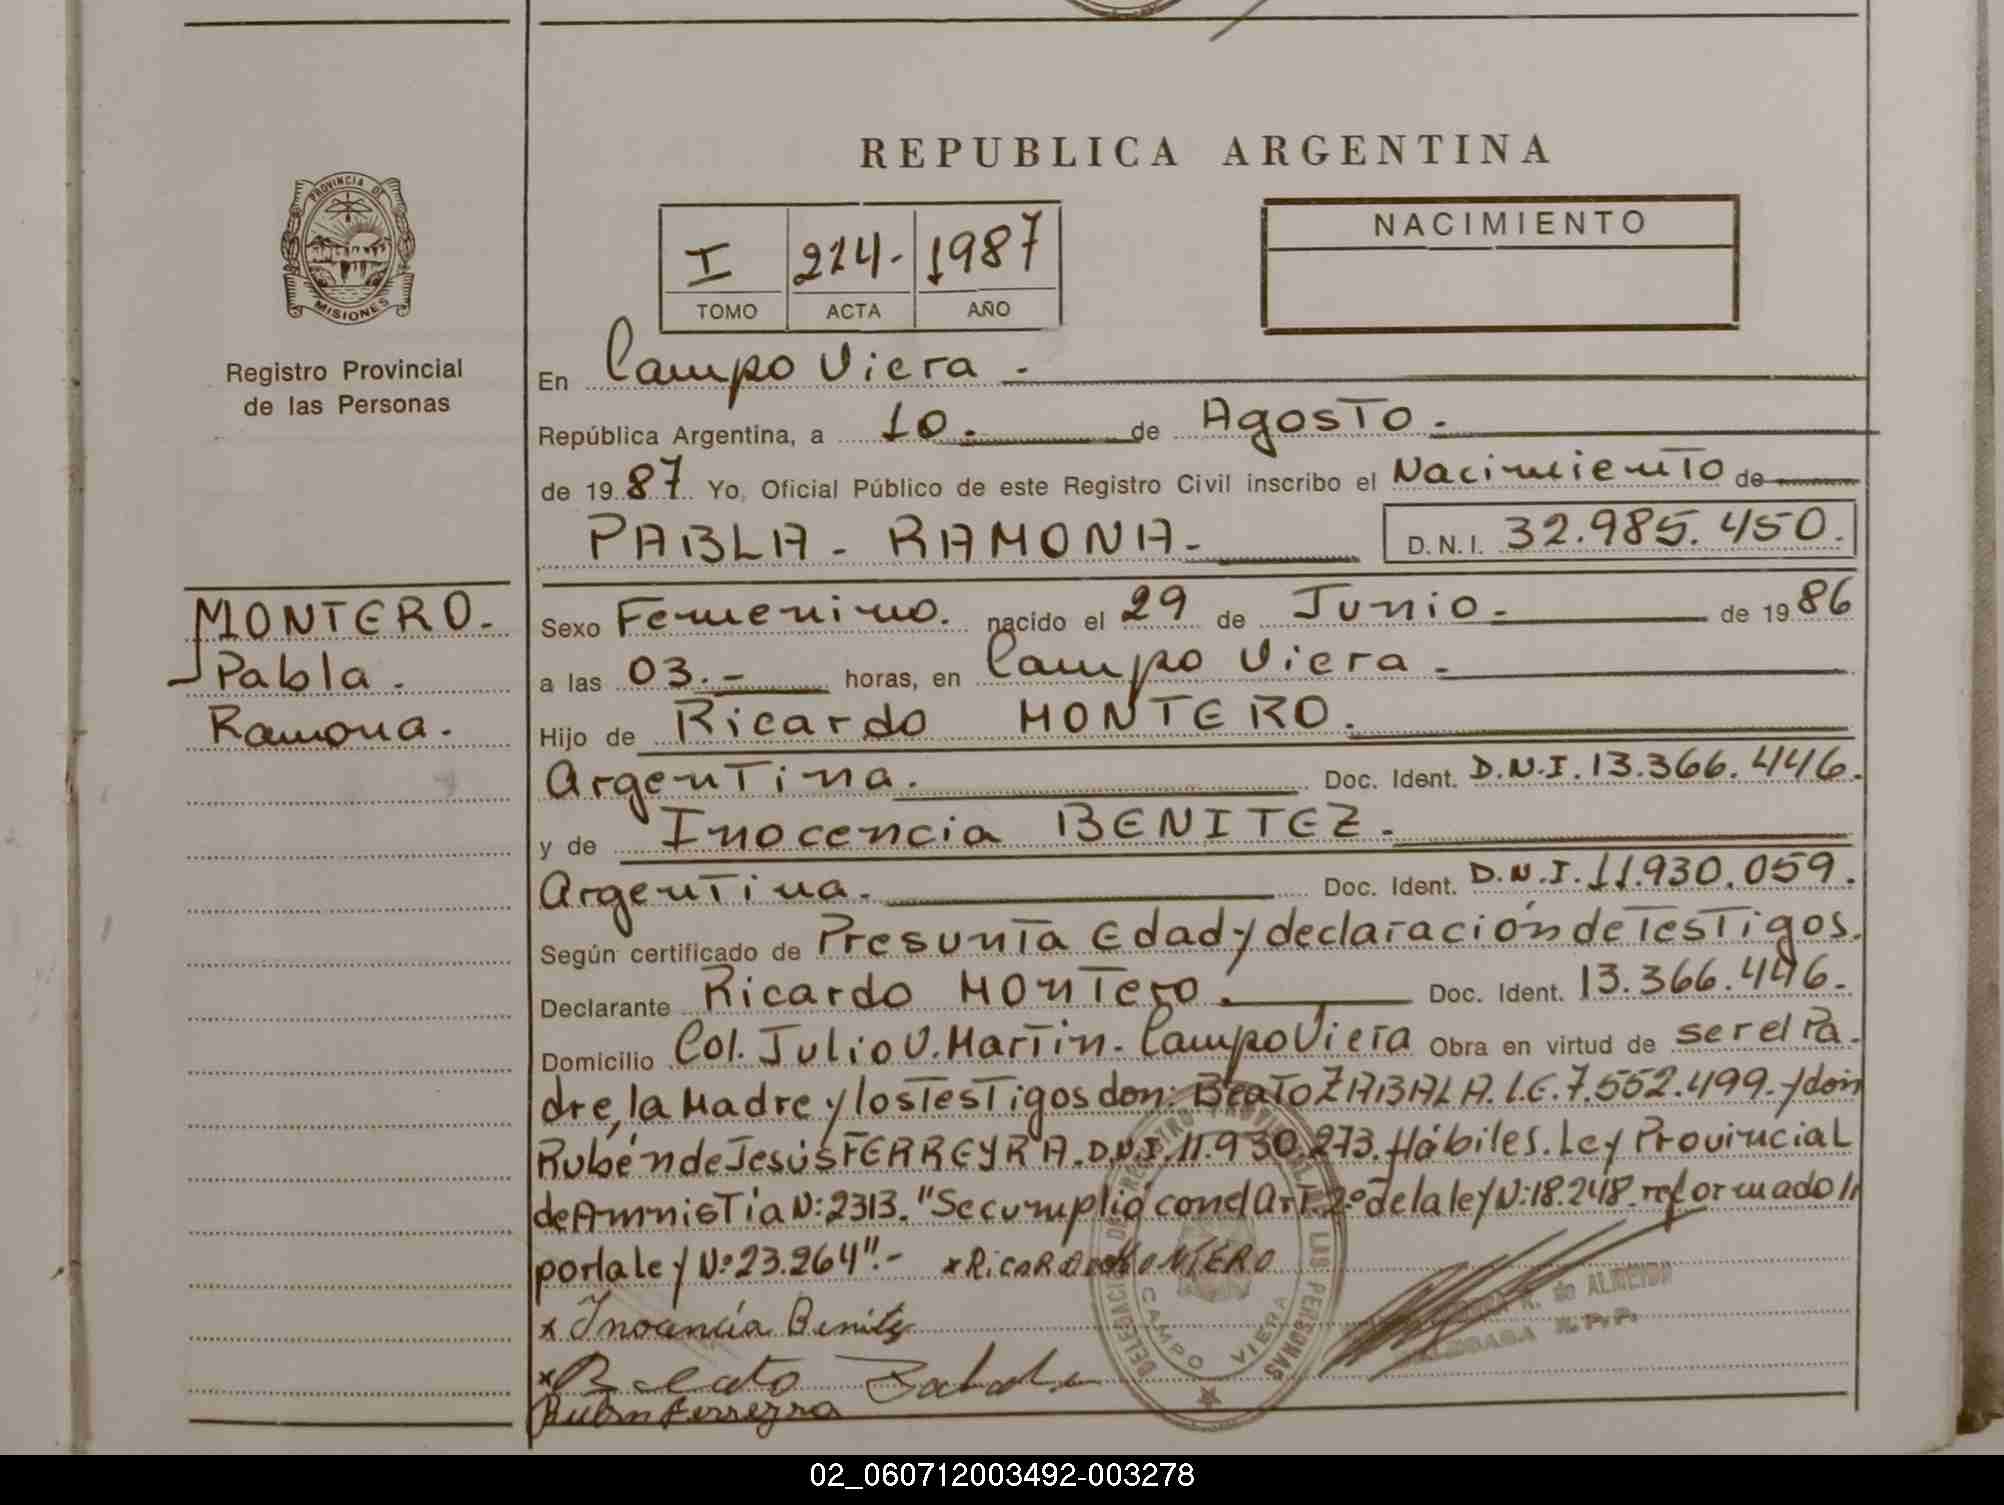 REPUBLICA ARGENTINA
PROVINCIA DE
MISIONES
I 214- 1987
TOMO ACTA AÑO
NACIMIENTO
Registro Provincial
de las Personas
En Campo Viera.
República Argentina, a 10. de Agosto.
de 19 87 Yo, Oficial Público de este Registro Civil inscribo el Nacimiento de
PABLA - RAMONA. D.N.I. 32.985.450.
MONTERO.
Pabla.
Ramona.
Sexo Femenino. nacido el 29 de Junio. de 19 86
a las 03.- horas, en Campo Viera.
Hijo de Ricardo MONTERO.
Argentina. Doc. Ident. D.N.I. 13.366.446.
y de Inocencia BENITEZ.
Argentina. Doc. Ident. D.N.I. 11.930.059.
Según certificado de Presunta Edad y declaración de Testigos.
Declarante Ricardo MONTERO. Doc. Ident. 13.366.446.
Domicilio Col. Julio U. Martin. Campo Viera Obra en virtud de ser el Pa-
dre, la Madre y los Testigos don: Beato ZABALA. L.E. 7.552.499. y don
Rubén de Jesús FERREYRA. D.N.I. 11.930.273. Hábiles. Ley Provincial
de Amnistia N: 2313. "Se cumplió con el Art. 2º de la ley N: 18.248. reformado //
por la ley Nº 23.264".- x RICARDO MONTERO
x Inocencia Benitez
x Beato Zabala
Ruben Ferreyra
DELEGACION REGISTRO PROVINCIAL DE LAS PERSONAS
CAMPO VIERA
de ALMEIDA
R.P.P.
02_060712003492-003278